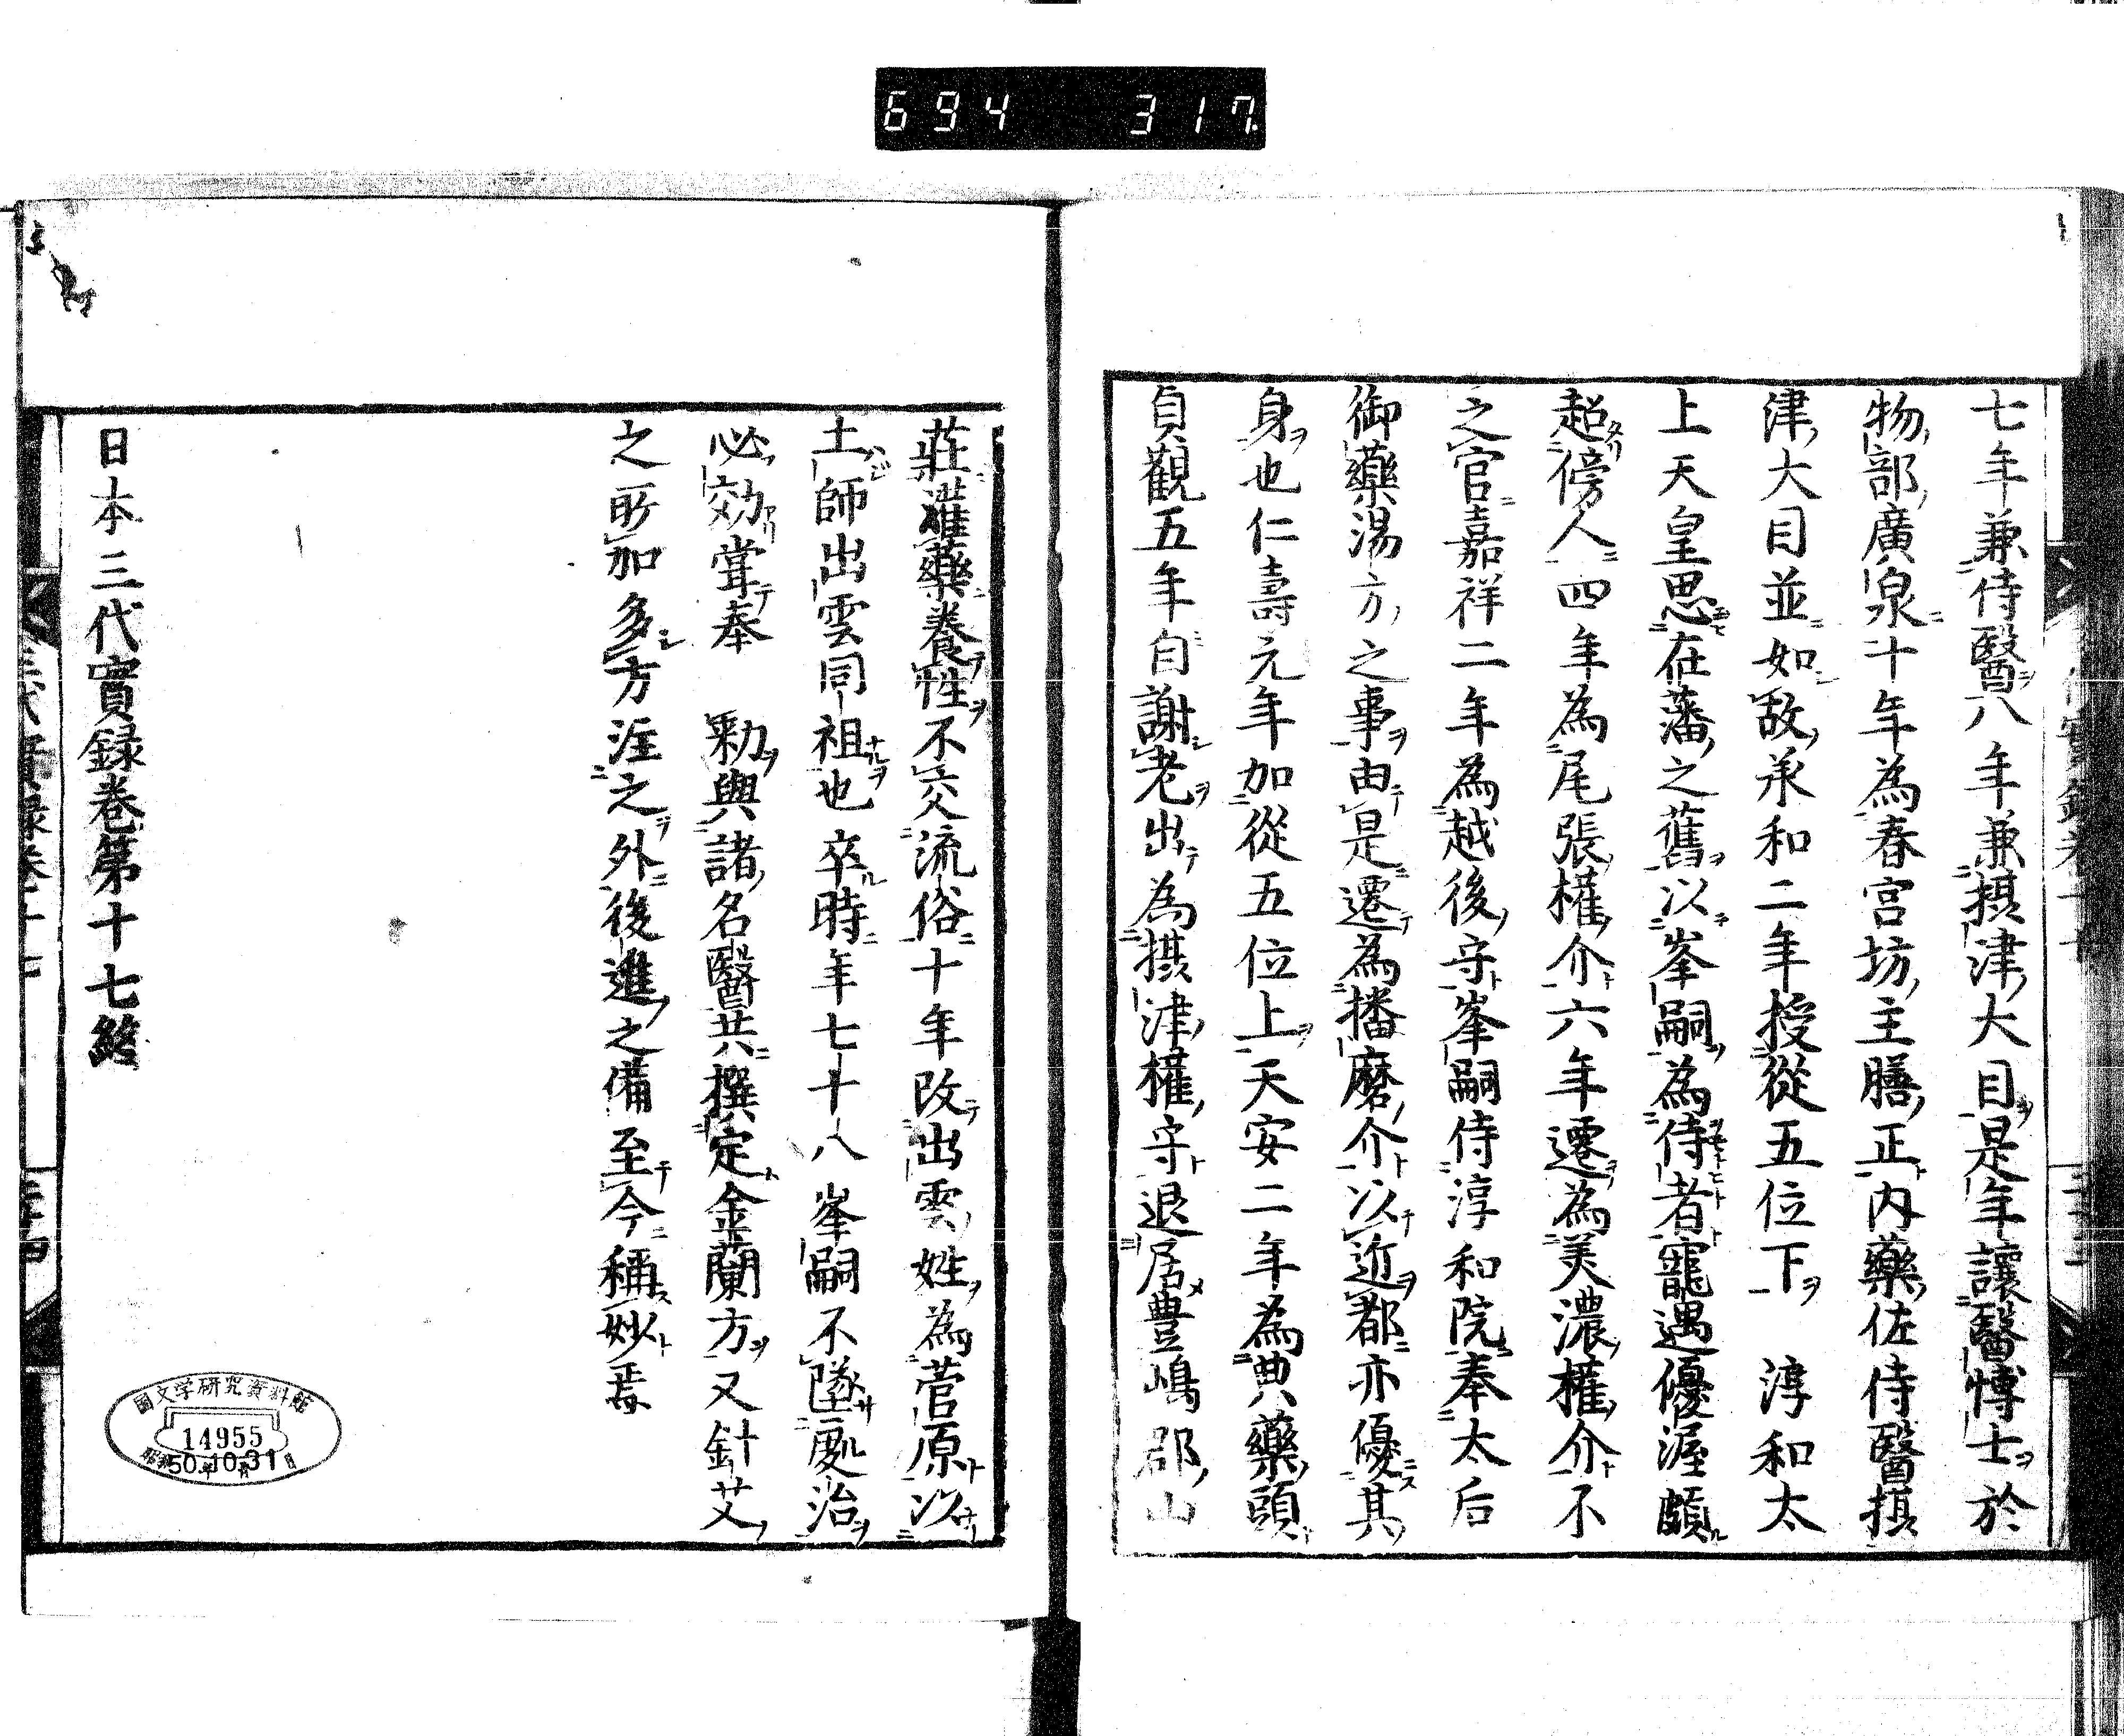 694 317
七年兼侍醫八年兼摂津大目是年讓醫博士於
物部廣泉十年為春宮坊主膳正内藥佐侍醫摂
津大目並如故承和二年授從五位下　淳和太
上天皇思在藩之舊以峯嗣為侍者寵遇優渥頗
超傍人四年為尾張權介六年遷為美濃權介不
之官嘉祥二年為越後守峯嗣侍淳和院奉太后
御藥湯方之事由是遷為播磨介以近都亦優其
身也仁壽元年加從五位上天安二年為典藥頭
貞觀五年自謝老出為摂津權守退居豊嶋郡山
莊灌藥養性不交流俗十年改出雲姓為菅原以
土師出雲同祖也卒時年七十八峯嗣不墜家治
必効嘗奉　勅與諸名醫共撰定金蘭方又針艾
之所加多方涯之外後進之備至今稱妙焉
日本三代實録巻第十七終
三代實録巻十七
三十四
國文学研究資料館
14955
昭和50.10.31